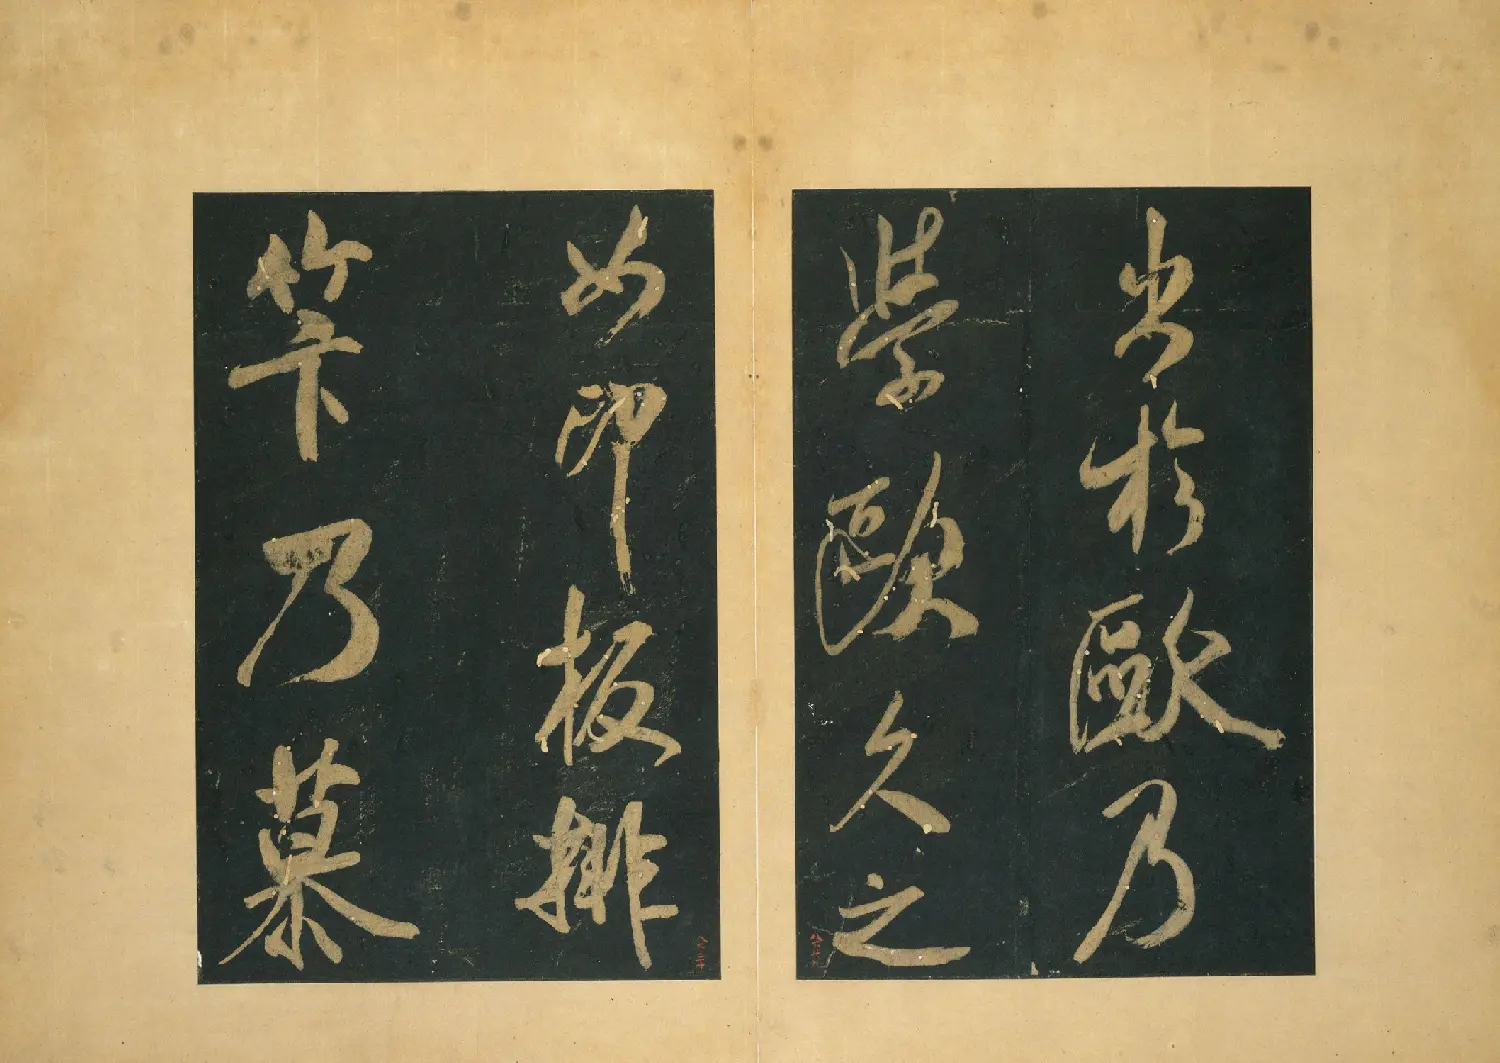 出於歐乃
學歐久之
如印板排
笇乃慕